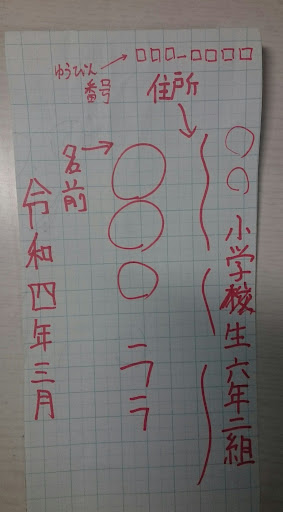 □□□-□□□□
ゆうびん
番号
住所
○○小学校生六年二組
名前
○○○ララ
令和四年三月